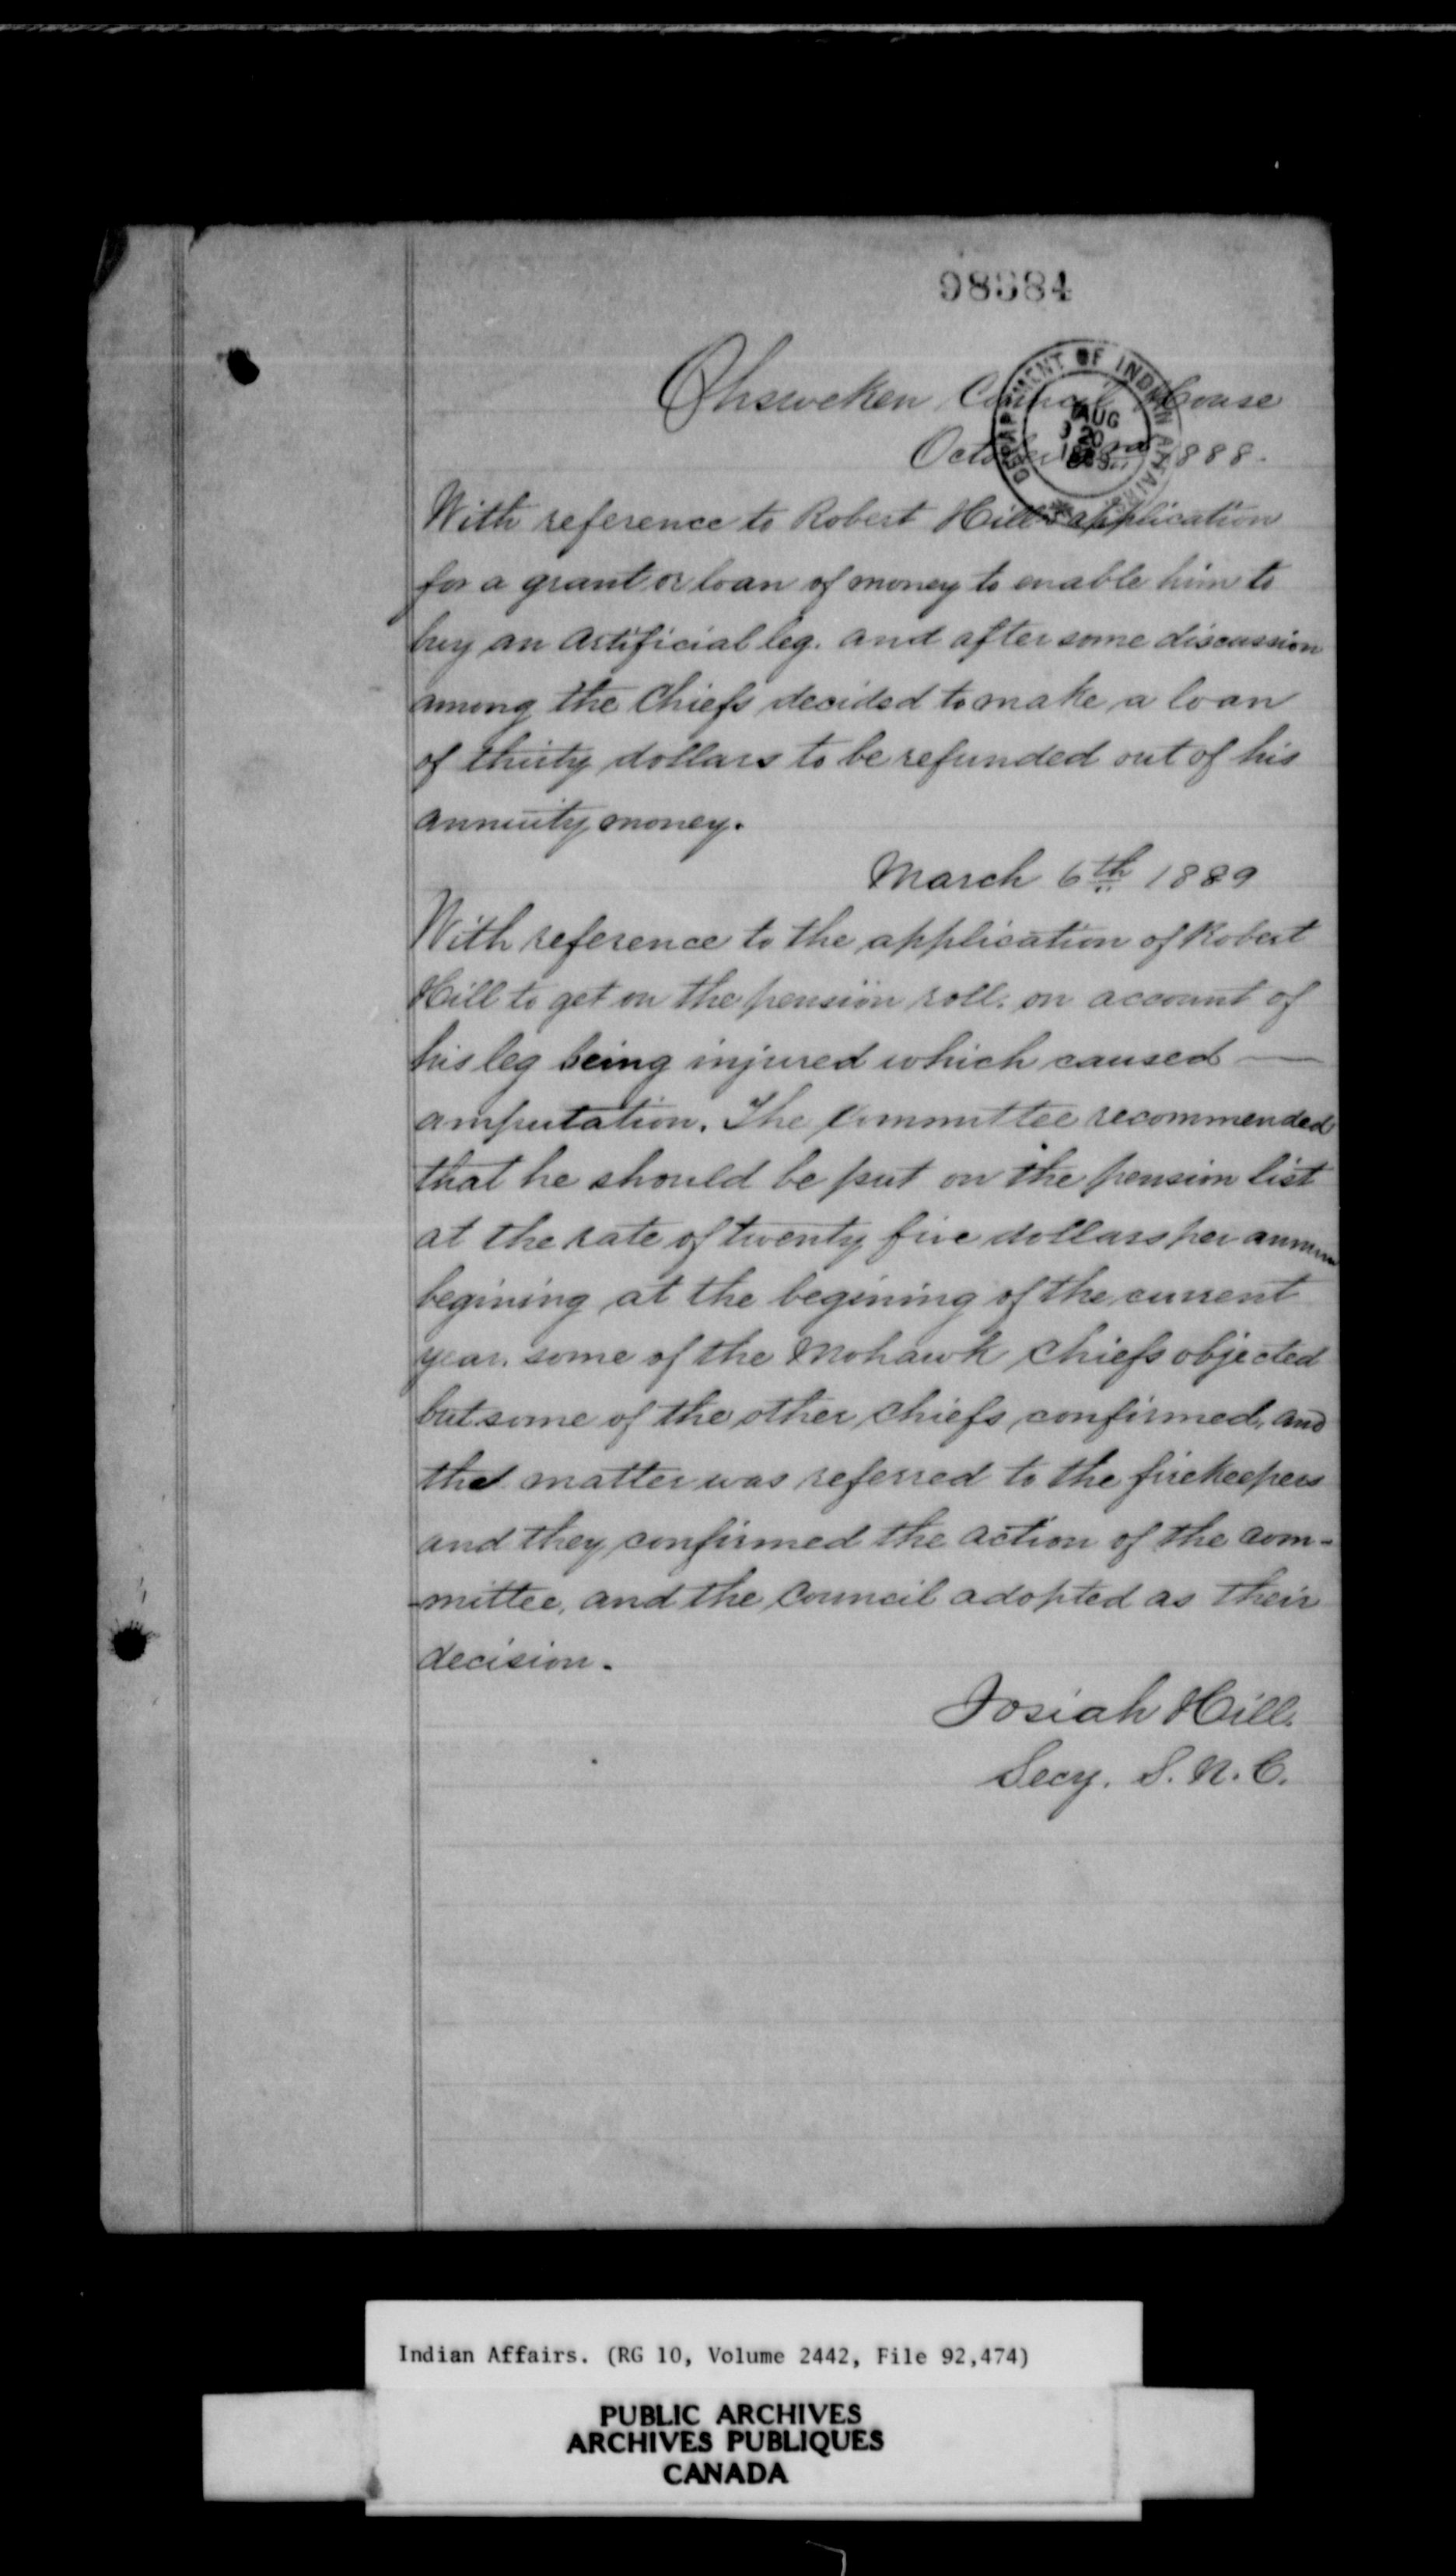 98684
Ohsweken Council House
October 1888.
DEPARTMENT OF INDIAN AFFAIRS
AUG
20
With reference to Robert Hill's application
for a grant or loan of money to enable him to
buy an artificial leg. and after some discussion
among the Chiefs decided to make a loan
of thirty dollars to be refunded out of his
annuity money.
March 6th 1889
With reference to the application of Robert
Hill to get on the pension roll. on account of
his leg being injured which caused —
amputation. The Committee recommended
that he should be put on the pension list
at the rate of twenty five dollars per annum
begining at the begining of the current
year. some of the Mohawk Chiefs objected
but some of the other chiefs confirmed, and
the matter was referred to the firekeepers
and they confirmed the action of the com-
-mittee, and the Council adopted as their
decision.
Josiah Hill.
Secy. S. N. C.
Indian Affairs. (RG 10, Volume 2442, File 92,474)
PUBLIC ARCHIVES
ARCHIVES PUBLIQUES
CANADA